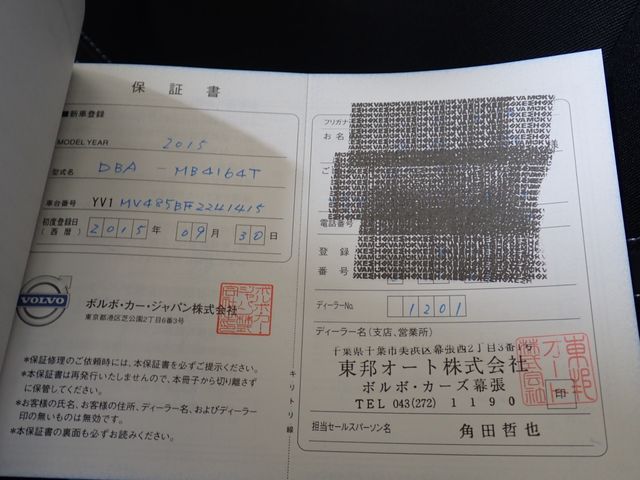 保証書
■新車登録
MODEL YEAR 2015
型式名 DBA - MB4164T
車台番号 YV1MV485BF2241415
初度登録日(西暦) 2015年 09月 30日
VOLVO
ボルボ・カー・ジャパン株式会社
東京都港区芝公園2丁目6番3号
*保証修理のご依頼時には、本保証書を必ずご提示ください。
*本保証書は再発行いたしませんので、本冊子から切り離さず
に保管してください。
*お客様の氏名、お客様の住所、ディーラー名、およびディーラー
印の無いものは無効です。
*本保証書の裏面も必ずお読みください。
キリトリ線
フリガナ
お名
様
ご
電話番号
登録
番号
ディーラーNo. 1201
ディーラー名(支店、営業所)
千葉県千葉市美浜区幕張西2丁目3番1号
東邦オート株式会社
ボルボ・カーズ幕張
TEL 043(272)1190
印
東邦オート株式会社
担当セールスパーソン名 角田哲也